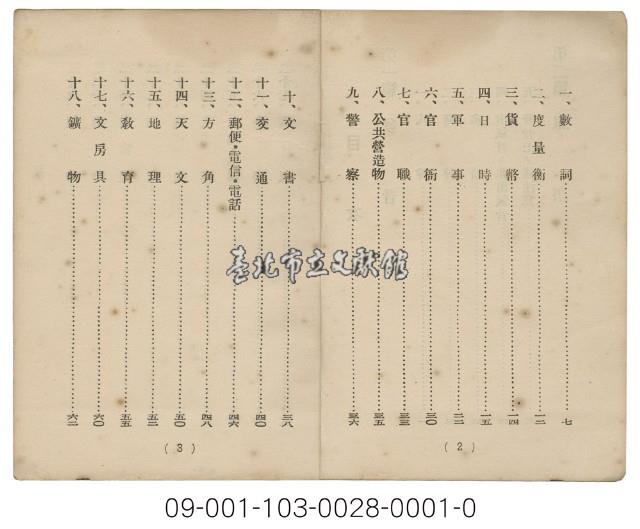 一、數詞……七
二、度量衡……一二
三、貨幣……一四
四、日時……一五
五、軍事……二二
六、官衙……三〇
七、官職……三三
八、公共營造物……三五
九、警察……三六
(2)
十、文書……三八
十一、交通……四〇
十二、郵便・電信・電話……四六
十三、方角……四八
十四、天文……五〇
十五、地理……五二
十六、敎育……五五
十七、文房具……六〇
十八、鑛物……六二
(3)
臺北市立文獻館
09-001-103-0028-0001-0